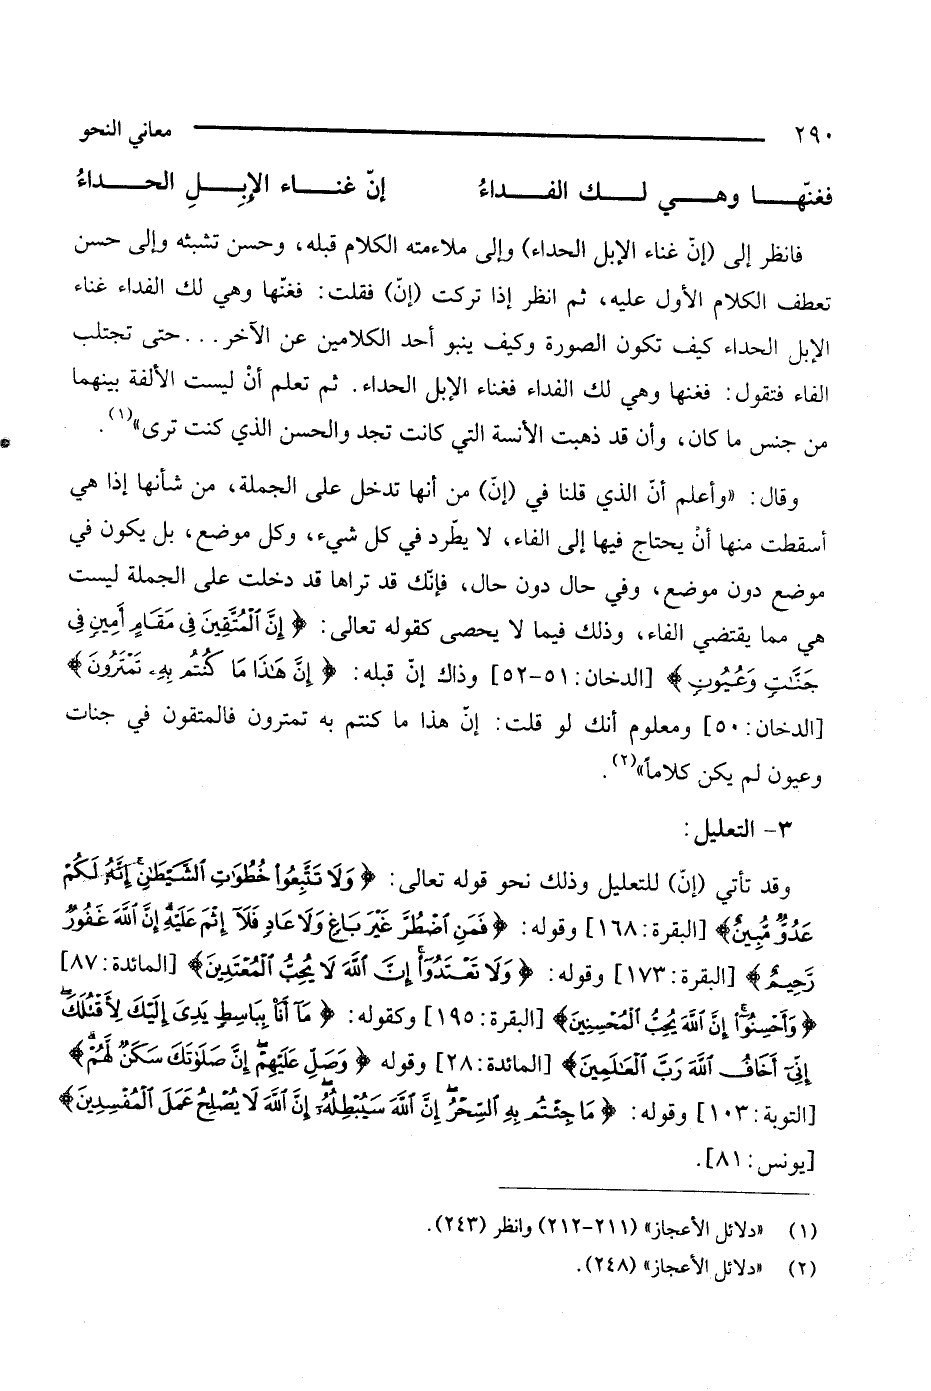 ٢٩٠ معاني النحو
فغنّهـــا وهـــي لـــك الفـــداءُ إنّ غنـــاء الإبِـــلِ الحـــداءُ
فانظر إلى (إنّ غناء الإبل الحداء) وإلى ملاءمته الكلام قبله، وحسن تشبثه وإلى حسن
تعطف الكلام الأول عليه، ثم انظر إذا تركت (إنّ) فقلت: فغنّها وهي لك الفداء غناء
الإبل الحداء كيف تكون الصورة وكيف ينبو أحد الكلامين عن الآخر... حتى تجتلب
الفاء فتقول: فغنها وهي لك الفداء فغناء الإبل الحداء. ثم تعلم أنْ ليست الألفة بينهما
من جنس ما كان، وأن قد ذهبت الأنسة التي كانت تجد والحسن الذي كنت ترى»(١).
وقال: «وأعلم أنّ الذي قلنا في (إنّ) من أنها تدخل على الجملة، من شأنها إذا هي
أسقطت منها أنْ يحتاج فيها إلى الفاء، لا يطّرد في كل شيء، وكل موضع، بل يكون في
موضع دون موضع، وفي حال دون حال، فإنّك قد تراها قد دخلت على الجملة ليست
هي مما يقتضي الفاء، وذلك فيما لا يحصى كقوله تعالى: ﴿ إِنَّ ٱلْمُتَّقِينَ فِى مَقَامٍ أَمِينٍ فِى
جَنَّٰتٍ وَعُيُونٍ ﴾ [الدخان: ٥١-٥٢] وذاك إنّ قبله: ﴿ إِنَّ هَٰذَا مَا كُنتُم بِهِۦ تَمْتَرُونَ ﴾
[الدخان: ٥٠] ومعلوم أنك لو قلت: إنّ هذا ما كنتم به تمترون فالمتقون في جنات
وعيون لم يكن كلاماً»(٢).
٣- التعليل:
وقد تأتي (إنّ) للتعليل وذلك نحو قوله تعالى: ﴿ وَلَا تَتَّبِعُوا۟ خُطُوَٰتِ ٱلشَّيْطَٰنِ ۚ إِنَّهُۥ لَكُمْ
عَدُوٌّ مُّبِينٌ﴾ [البقرة: ١٦٨] وقوله: ﴿ فَمَنِ ٱضْطُرَّ غَيْرَ بَاغٍ وَلَا عَادٍ فَلَآ إِثْمَ عَلَيْهِ ۚ إِنَّ ٱللَّهَ غَفُورٌ
رَّحِيمٌ ﴾ [البقرة: ١٧٣] وقوله: ﴿ وَلَا تَعْتَدُوٓا۟ ۚ إِنَّ ٱللَّهَ لَا يُحِبُّ ٱلْمُعْتَدِينَ﴾ [المائدة: ٨٧]
﴿ وَأَحْسِنُوٓا۟ ۛ إِنَّ ٱللَّهَ يُحِبُّ ٱلْمُحْسِنِينَ﴾ [البقرة: ١٩٥] وكقوله: ﴿ مَآ أَنَا۠ بِبَاسِطٍ يَدِىَ إِلَيْكَ لِأَقْتُلَكَ ۖ
إِنِّىٓ أَخَافُ ٱللَّهَ رَبَّ ٱلْعَٰلَمِينَ﴾ [المائدة: ٢٨] وقوله ﴿ وَصَلِّ عَلَيْهِمْ ۖ إِنَّ صَلَوٰتَكَ سَكَنٌ لَّهُمْ ۗ﴾
[التوبة: ١٠٣] وقوله: ﴿ مَا جِئْتُم بِهِ ٱلسِّحْرُ ۖ إِنَّ ٱللَّهَ سَيُبْطِلُهُۥٓ ۖ إِنَّ ٱللَّهَ لَا يُصْلِحُ عَمَلَ ٱلْمُفْسِدِينَ﴾
[يونس: ٨١].
(١) «دلائل الأعجاز» (٢١١-٢١٢) وانظر (٢٤٣).
(٢) «دلائل الأعجاز» (٢٤٨).